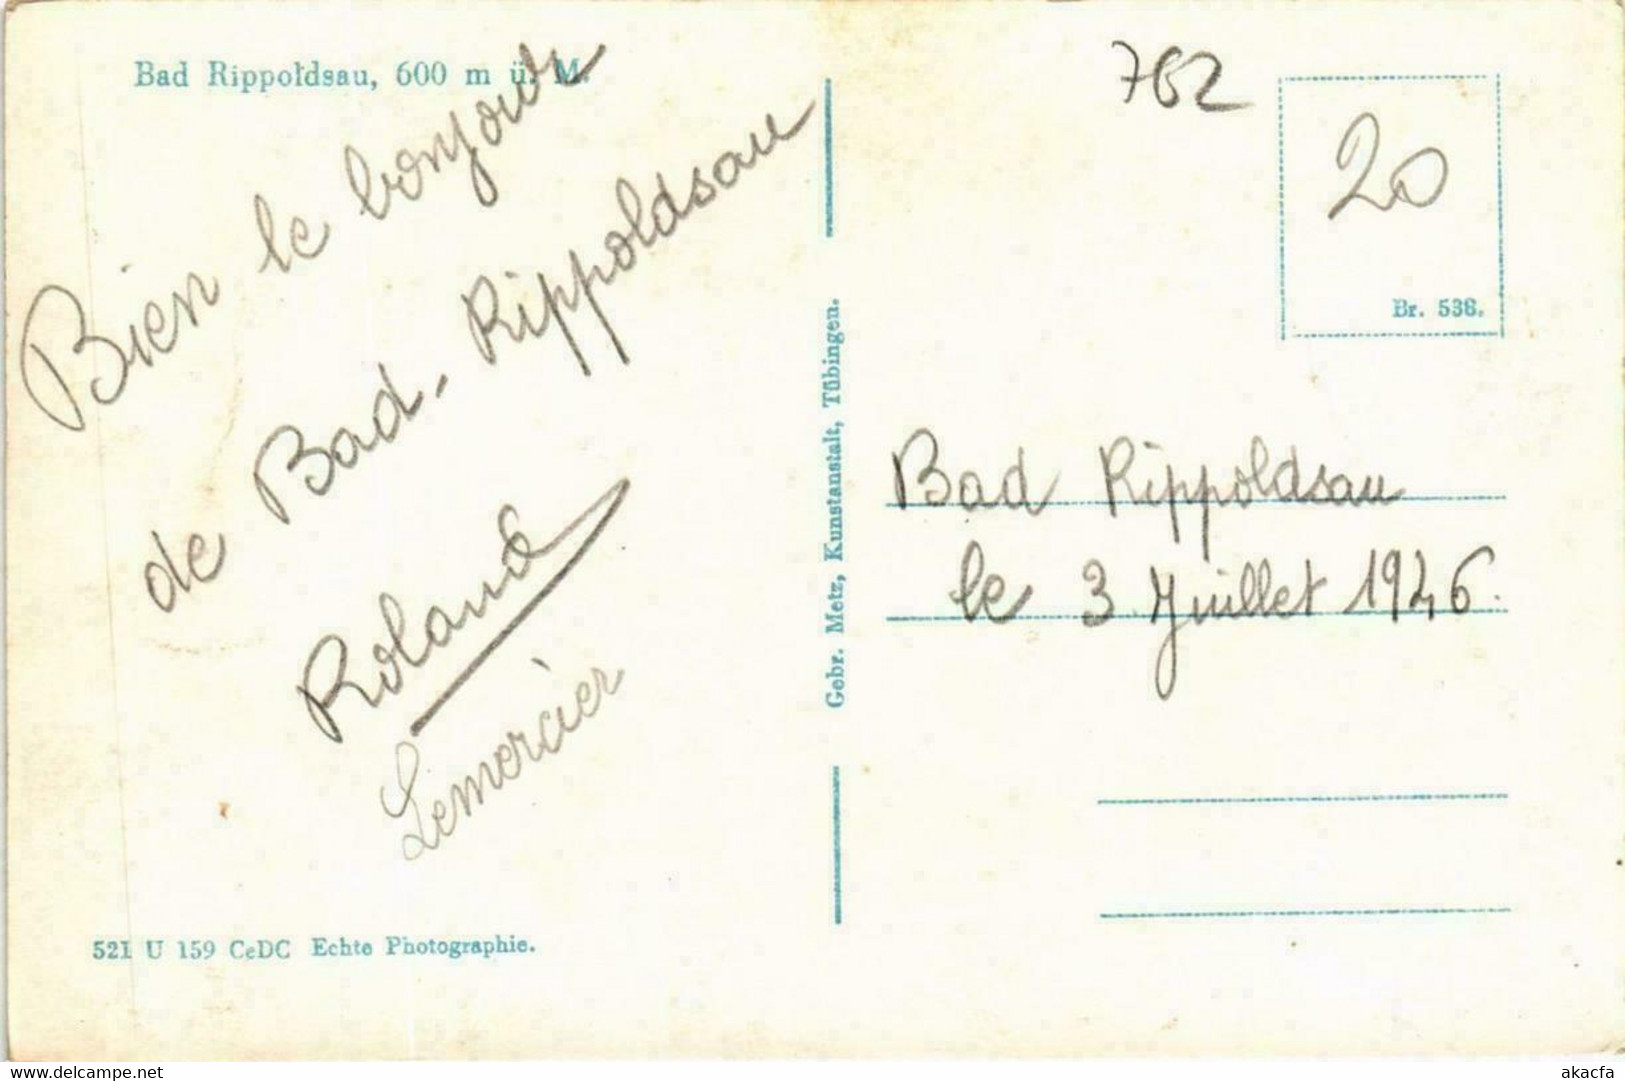 Bad Rippoldsau, 600 m ü. M.
Bien le bonjour
de Bad-Rippoldsau
Roland
Lemercier
521 U 159 CeDC Echte Photographie.
Gebr. Metz, Kunstanstalt, Tübingen.
762
20
Br. 538.
Bad Rippoldsau
le 3 Juillet 1946.
akacfa